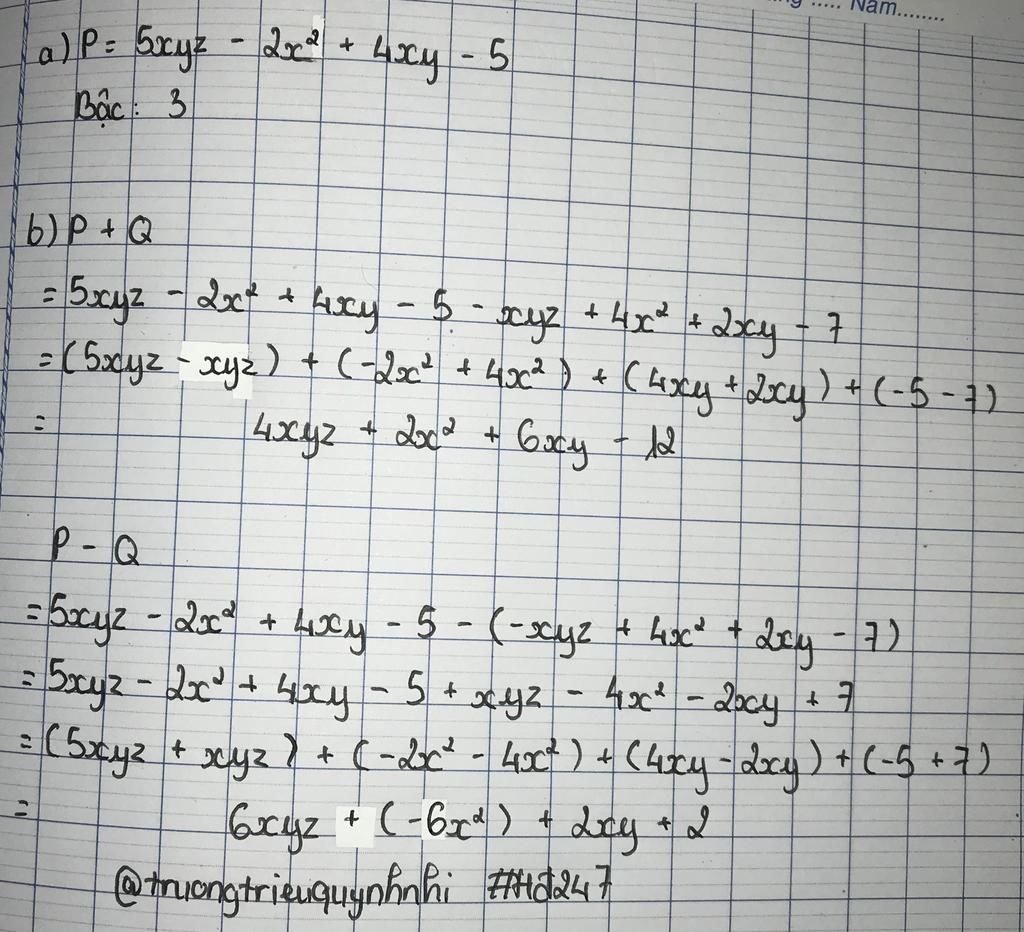 Năm........
a) P = 5xyz - 2x² + 4xy - 5
Bậc : 3
b) P + Q
= 5xyz - 2x² + 4xy - 5 - xyz + 4x² + 2xy - 7
= (5xyz - xyz) + (-2x² + 4x²) + (4xy + 2xy) + (-5 - 7)
= 4xyz + 2x² + 6xy - 12
P - Q
= 5xyz - 2x² + 4xy - 5 - (-xyz + 4x² + 2xy - 7)
= 5xyz - 2x² + 4xy - 5 + xyz - 4x² - 2xy + 7
= (5xyz + xyz) + (-2x² - 4x²) + (4xy - 2xy) + (-5 + 7)
= 6xyz + (-6x²) + 2xy + 2
@truongtrieuquynhnhi #Hd247